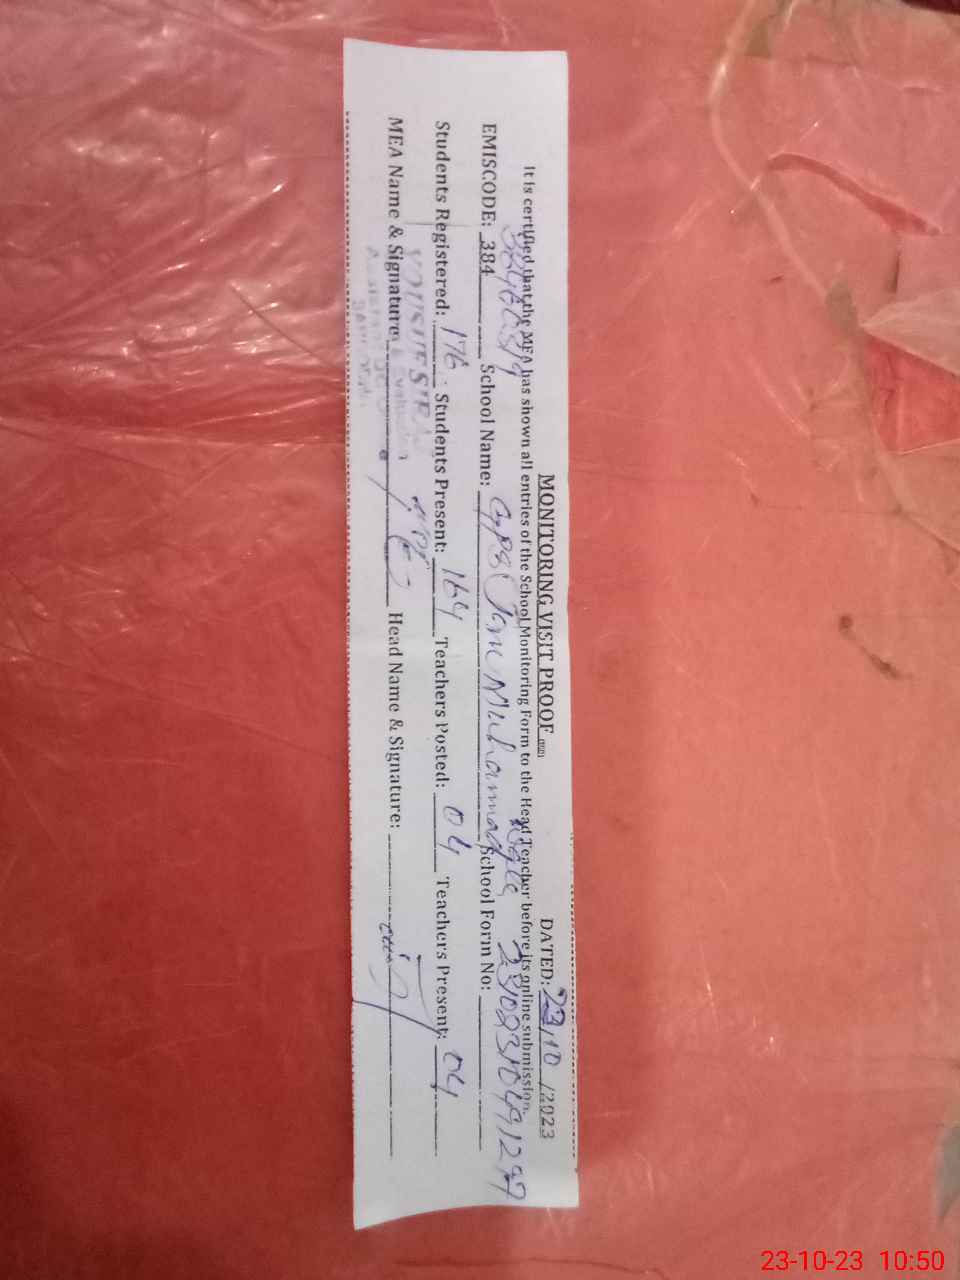 MONITORING VISIT PROOF DATED: 23/10/2023
It is certified that the MEA has shown all entries of the School Monitoring Form to the Head Teacher before its online submission.
EMISCODE: 384 School Name: GPS Jam Muhammad School Form No:
Students Registered: 176 Students Present: 164 Teachers Posted: 04 Teachers Present: 04
MEA Name & Signature Head Name & Signature:
23-10-23 10:50